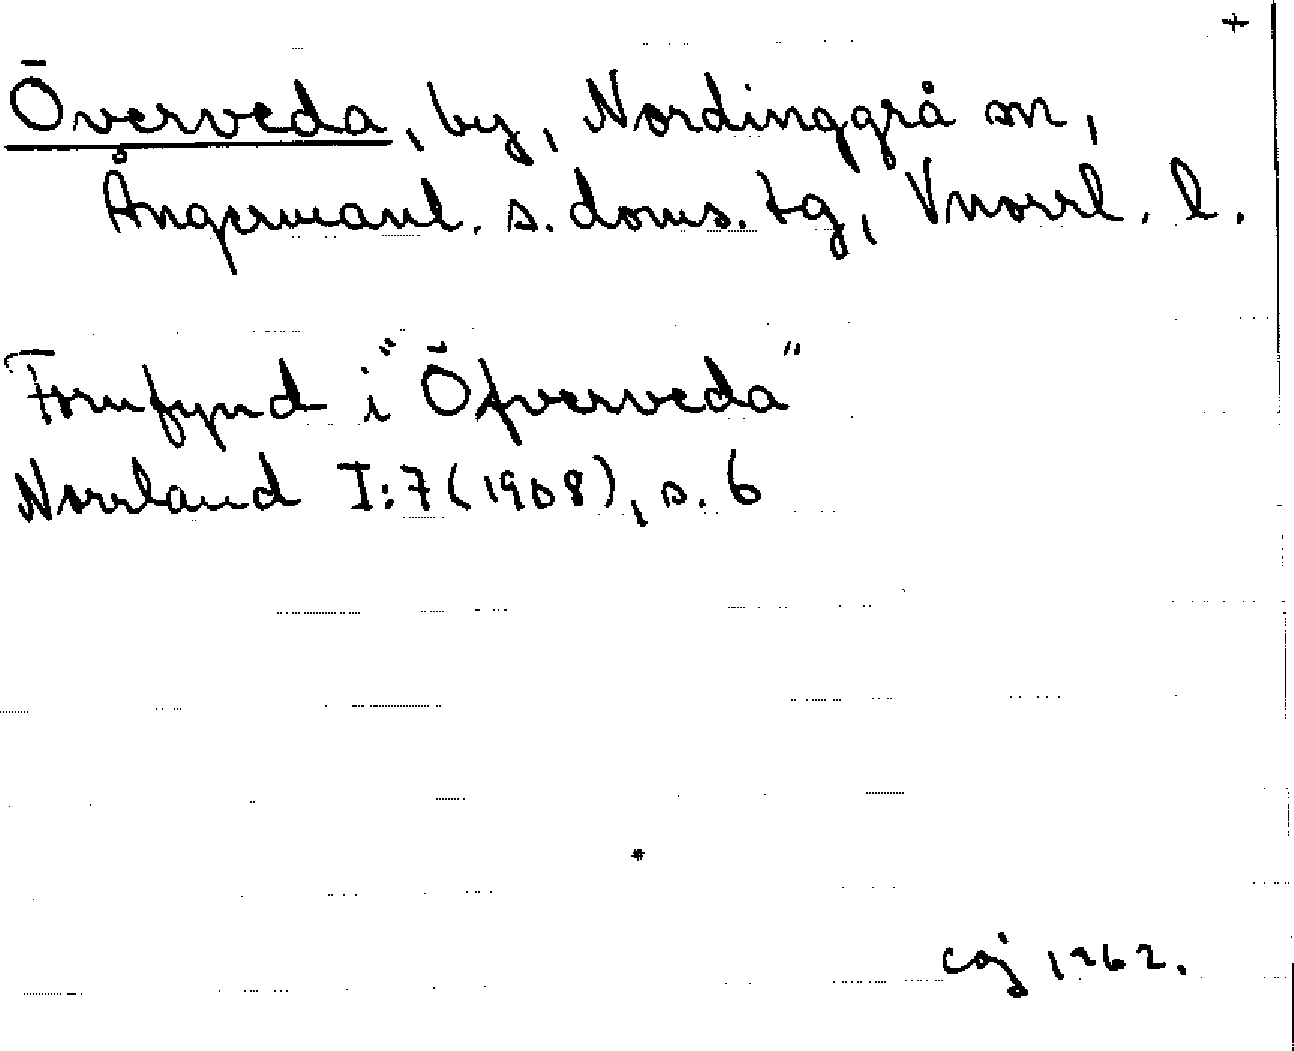 +
Överveda, by, Nordinggrå sn,
Ångermanl. s. doms. tg, Vnorrl. l.
Fornfynd i "Öfverveda"
Norrland I:7 (1908), s. 6
caj 1962.